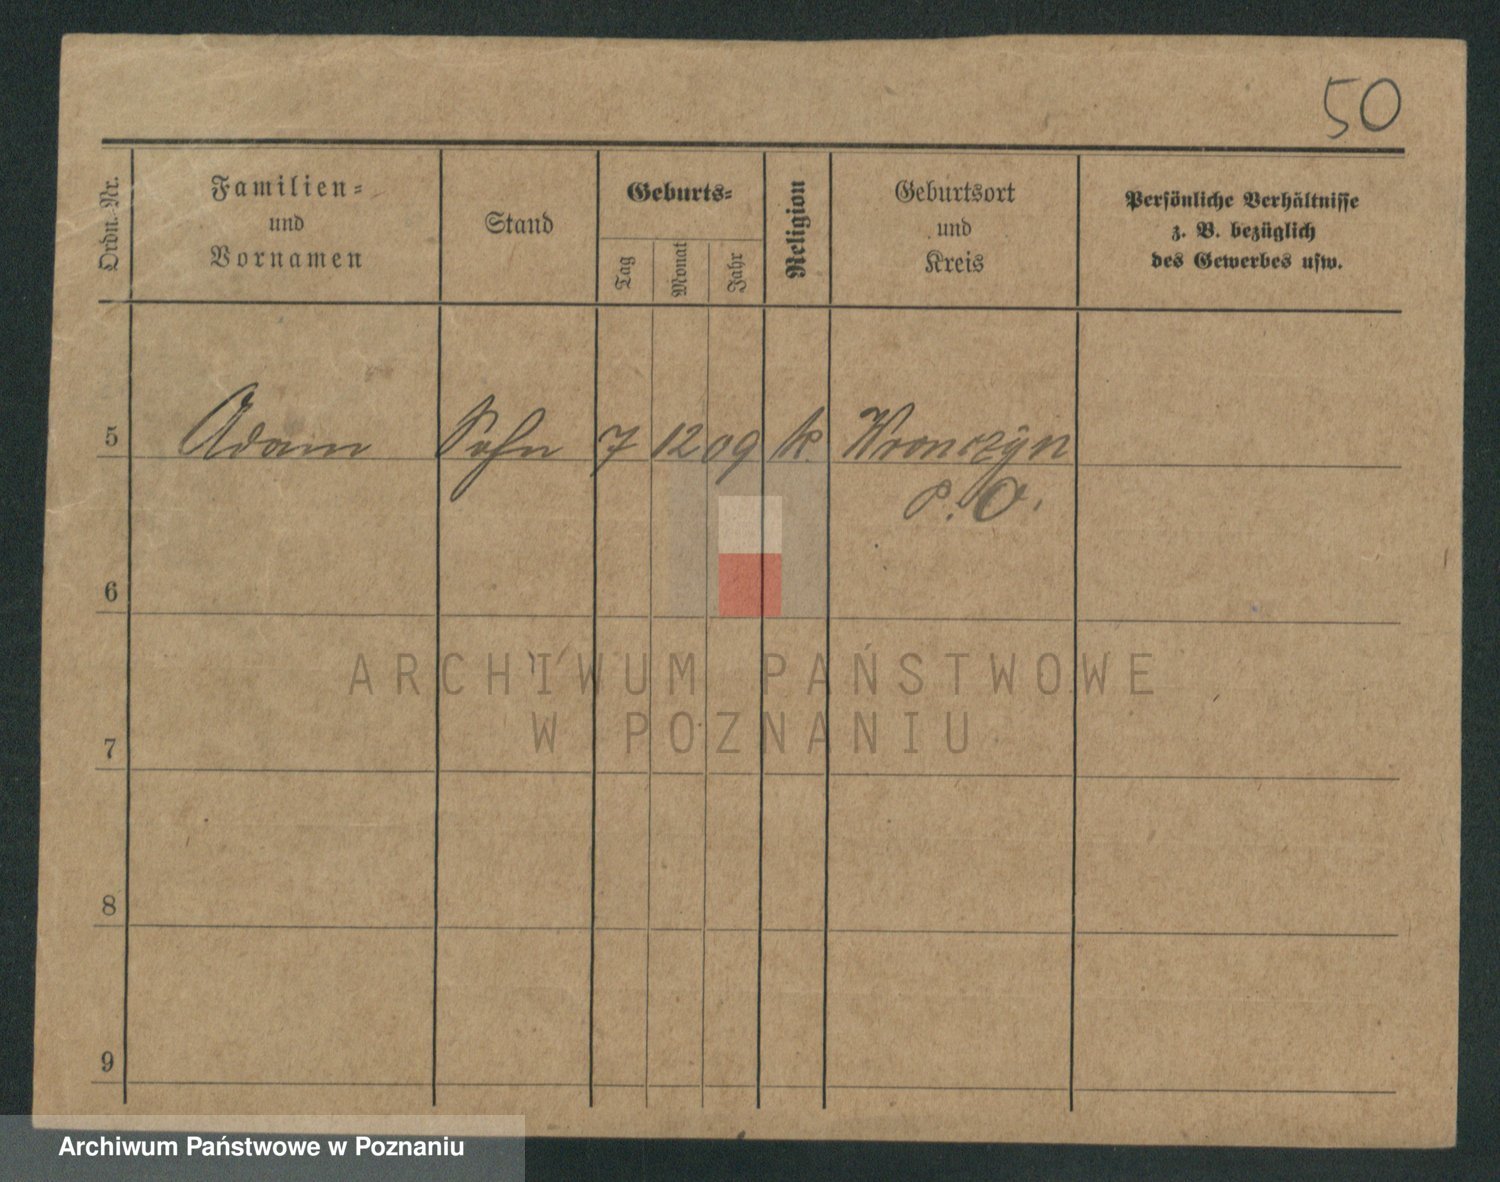 50
Ordn. Nr.
Familien-
und
Vornamen
Stand
Geburts-
Tag
Monat
Jahr
Religion
Geburtsort
und
Kreis
Persönliche Verhältnisse
z. B. bezüglich
des Gewerbes usw.
5 Adam Sohn 7 12 09 k. Wronczyn
P. O.
6
7
8
9
ARCHIWUM PAŃSTWOWE
W POZNANIU
Archiwum Państwowe w Poznaniu